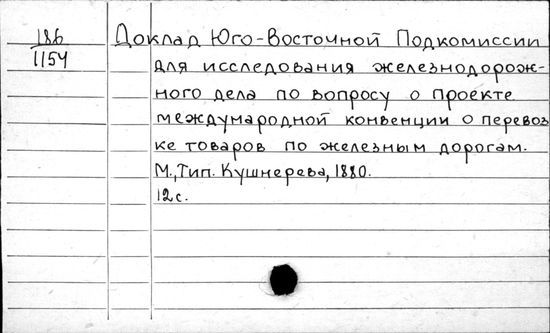 186
1154
Доклад Юго-Восточной Подкомиссии
для исследования железнодорож-
ного дела по вопросу о проекте
международной конвенции о перевоз
ке товаров по железным дорогам.
М., Тип. Кушнерева, 1880.
12с.